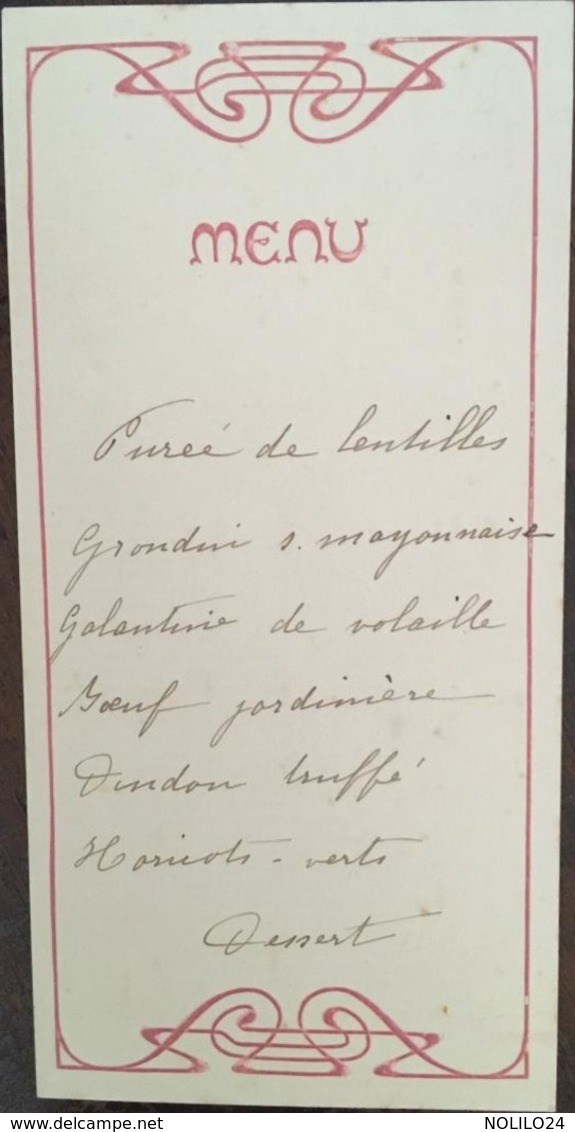 MENU
Pureé de lentilles
Grondin s. mayonnaise
Galantine de volaille
Bœuf jardinière
Dindon truffé
Haricots-verts
Dessert
www.delcampe.net
NOLILO24